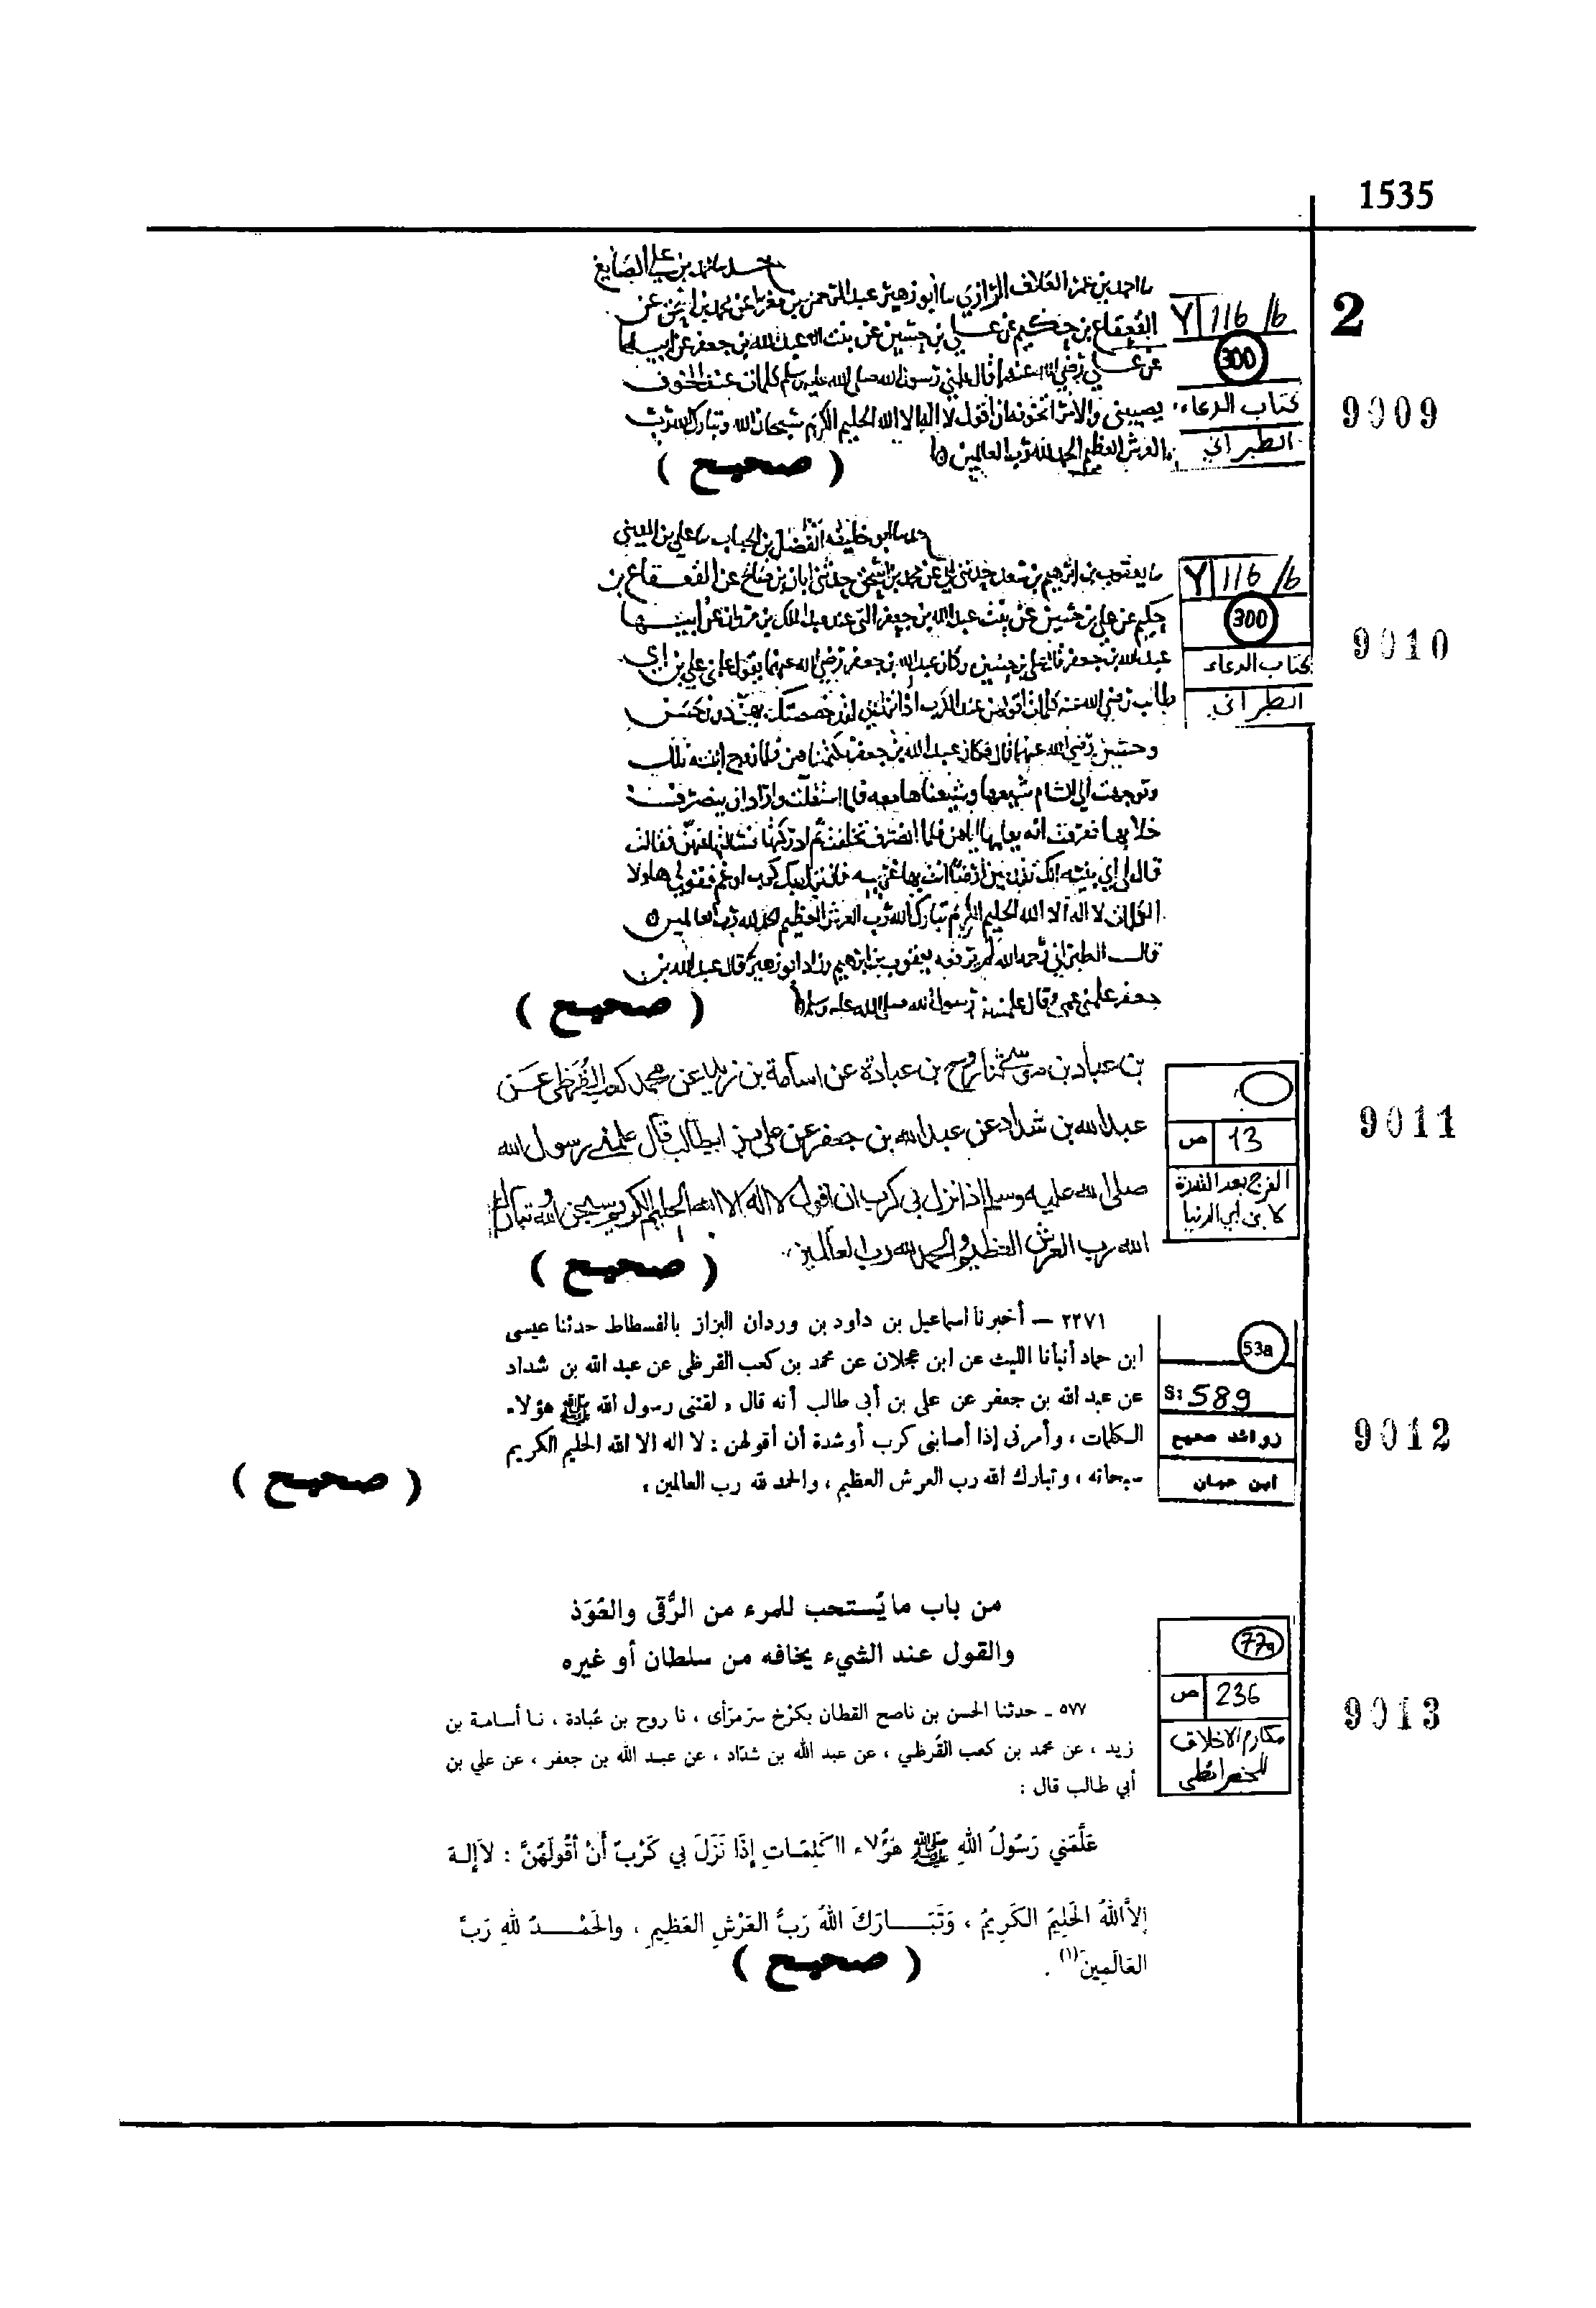 1535
2
حدثنا محمد بن علي الصايغ
ما احمد بن عمر العلاف الرازي ما أبو زهير عبد الرحمن بن مغرا عن محمد بن اسحق عن
القعقاع بن حكيم عن علي بن حسين عن بنت عبد الله بن جعفر عن ابيها
عن علي رضي الله عنه قال علمني رسول الله صلى الله عليه وسلم كلمات عند الخوف
يصيبني والامر اتخوفه ان اقول لا اله الا الله الحليم الكريم سبحان الله وتبارك الله رب
العرش العظيم الحمد لله رب العالمين
( صحيح )
Y 116/b
300
كتاب الدعاء
الطبراني
9009
حدثنا ابو خليفه الفضل بن الحباب ما علي بن المديني
ما يعقوب بن ابرهيم بن سعد حدثني ابي عن محمد بن اسحق حدثني ابان بن صالح عن القعقاع بن
حكيم عن علي بن حسين عن بنت عبد الله بن جعفر التي عند عبد الملك بن مروان عن ابيها
عبد الله بن جعفر قال علي بن حسين وكان عبد الله بن جعفر رضي الله عنهما يقول علمني علي بن ابي
طالب رضي الله عنه كلمات اقولهن عند الكرب اذا نزل لقد خصصتك بهن دون حسن
وحسين رضي الله عنهما قال فكان عبد الله بن جعفر يكتمنا هن فلما زوج ابنته تلك
وتوجهت الى الشام شيعها وشيعناها معه فلما استقلت واراد ان ينصرف
خلا بها فعرفت انه يعلمها اياهن فلما انصرف تخلفت ثم ادركتها فسالتها عنهن فقالت
قال لي اي بنيه انك تقدمين ارضا انت بها غريبه فاذا نزل بك كرب او غم فقولي هاولا
الكلمات لا اله الا الله الحليم الكريم تبارك الله رب العرش العظيم الحمد لله رب العالمين
قال الطبراني رحمه الله لم يرفعه يعقوب بن ابرهيم وزاد ابو زهير قال عبد الله بن
جعفر علمني عمي وقال علمنيهن رسول الله صلى الله عليه وسلم
( صحيح )
Y 116/b
300
كتاب الدعاء
الطبراني
9010
بن عباد بن موسى ثنا روح بن عبادة عن اسامة بن زيد عن محمد كعب القرظي عن
عبد الله بن شداد عن عبد الله بن جعفر عن علي بن ابي طالب قال علمني رسول الله
صلى الله عليه وسلم اذا نزل بي كرب ان اقول لا اله الا الله الحليم الكريم سبحن الله وتبارك
الله رب العرش العظيم والحمد لله رب العالمين
( صحيح )
ص 13
الفرج بعد الشدة
لابن أبي الدنيا
9011
٢٣٧١ — أخبرنا اسماعيل بن داود بن وردان البزاز بالفسطاط حدثنا عيسى
ابن حماد أنبأنا الليث عن ابن عجلان عن محمد بن كعب القرظي عن عبد الله بن شداد
عن عبد الله بن جعفر عن علي بن أبي طالب أنه قال « لقنني رسول الله ﷺ هؤلاء
الكلمات ، وأمرني إذا أصابني كرب أو شدة أن أقولهن : لا اله الا الله الحليم الكريم
سبحانه ، وتبارك الله رب العرش العظيم ، والحمد لله رب العالمين »
( صحيح )
53a
S: 589
زوائد صحيح
ابن حبان
9012
من باب ما يُستحب للمرء من الرُّقى والعُوَذ
والقول عند الشيء يخافه من سلطان أو غيره
٥٧٧ ـ حدثنا الحسن بن ناصح القطان بكرْخ سرّ مَرّأى ، نا روح بن عُبادة ، نـا أسـامـة بن
زيد ، عن محمد بن كعب القُرظي ، عن عبد الله بن شدّاد ، عن عبـد الله بن جعفر ، عن علي بن
أبي طالب قال :
عَلَّمَني رَسُولُ اللهِ ﷺ هَؤُلاء الكَلِمَـاتِ إذَا نَزَلَ بي كَرْبٌ أَنْ أَقُولَهُنَّ : لاَ إلـهَ
إلاَّ اللهُ الحَلِيمُ الكَرِيمُ ، وَتَبَـــارَكَ اللهُ رَبُّ العَرْشِ العَظِيمِ ، والحَمْـــدُ للهِ رَبِّ
العَالَمِينَ(١) .
( صحيح )
77a
ص 236
مكارم الاخلاق
للخرائطي
9013